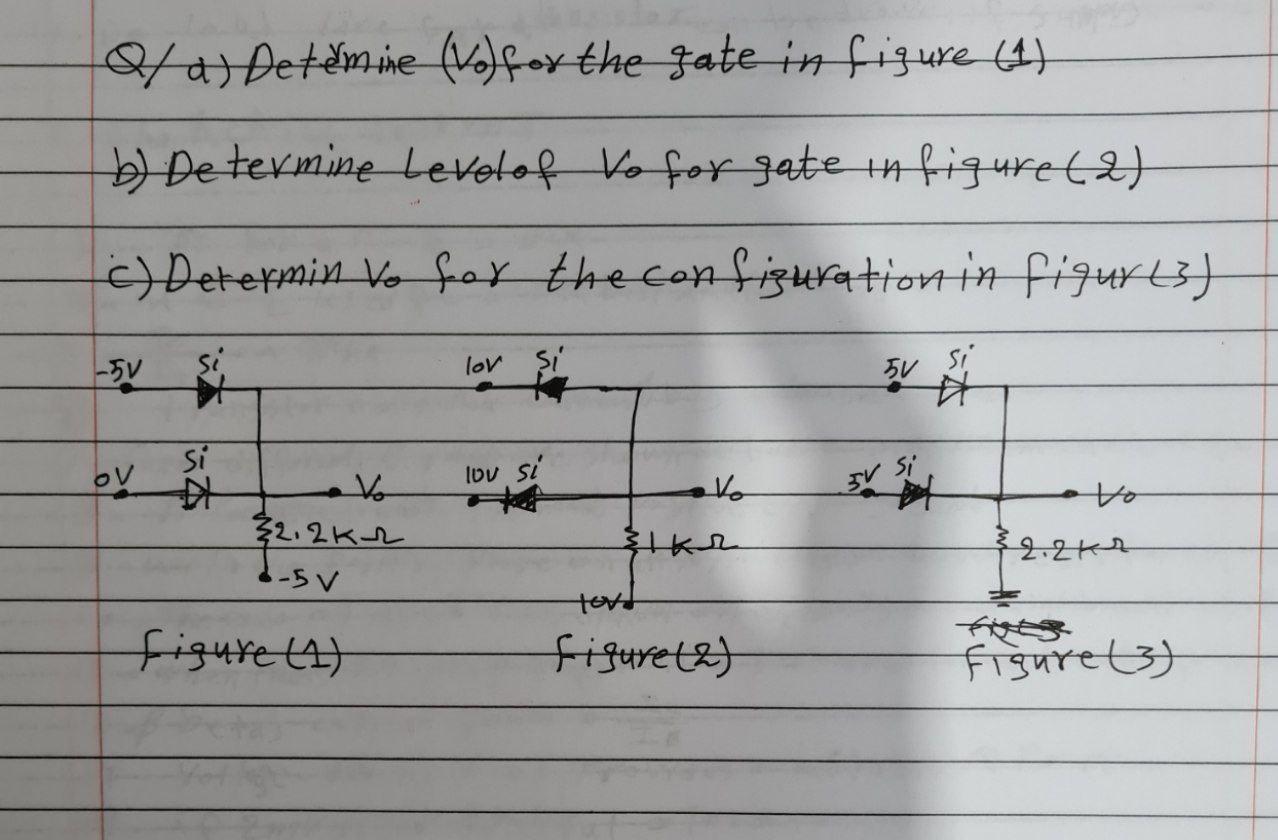 Q/ a) Determine (Vo) for the gate in figure (1)
b) Determine Levelof Vo for gate in figure (2)
c) Determin Vo for the configuration in figur (3)
-5V Si
0V Si Vo
2.2KΩ
-5V
Figure (1)
10V Si
10V Si Vo
1KΩ
10V
Figure (2)
5V Si
5V Si Vo
2.2KΩ
Figure (3)